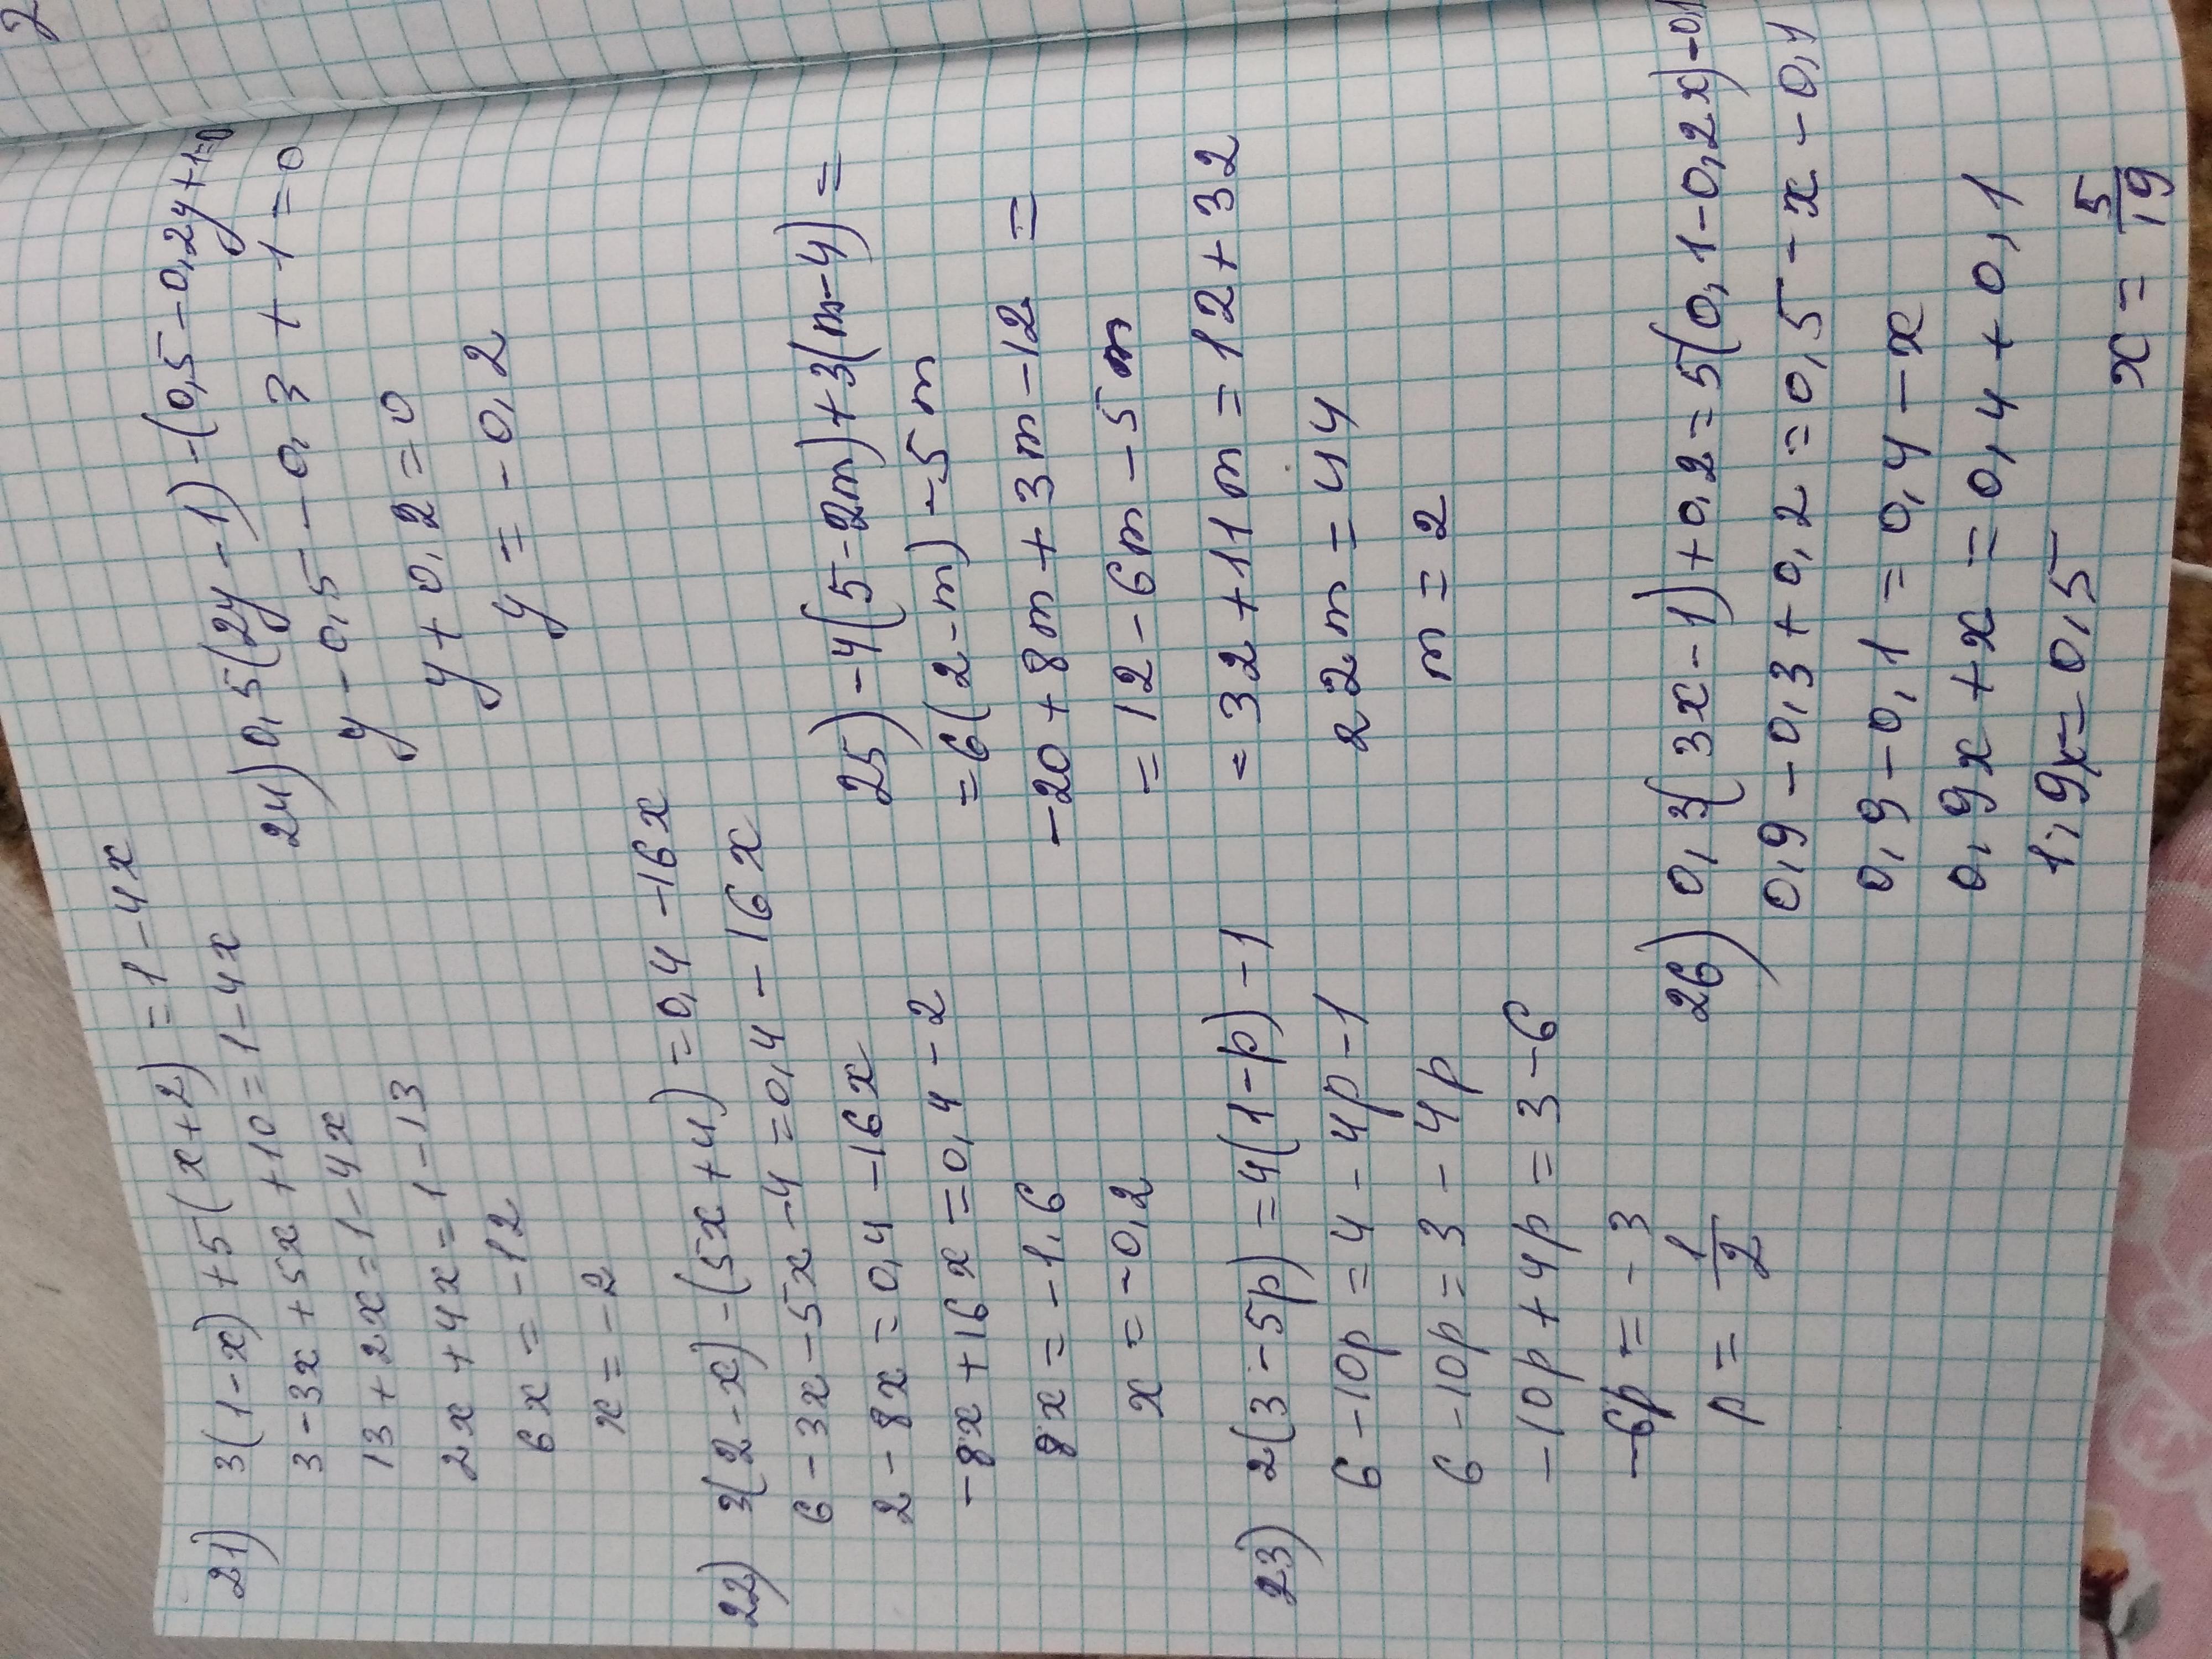 21) 3(1-x)+5(x+2) =1-4x
3-3x+5x+10=1-4x
13+2x=1-4x
2x+4x=1-13
6x=-12
x=-2
22) 3(2-x)-(5x+4)=0,4-16x
6-3x-5x-4=0,4-16x
2-8x=0,4-16x
-8x+16x=0,4-2
8x=-1,6
x=-0,2
23) 2(3-5p)=4(1-p)-1
6-10p=4-4p-1
6-10p=3-4p
-10p+4p=3-6
-6p=-3
p=1/2
24) 0,5(2y-1)-(0,5-0,2y+1=0
y-0,5-0,3+1=0
y+0,2=0
y=-0,2
25) -4(5-2m)+3(m-4)=
=6(2-m)-5m
-20+8m+3m-12=
=12-6m-5m
=32+11m=12+32
22m=44
m=2
26) 0,3(3x-1)+0,2=5(0,1-0,2x)-0,1
0,9-0,3+0,2=0,5-x-0,1
0,9-0,1=0,4-x
0,9x+x=0,4+0,1
1,9x=0,5
x=5/19